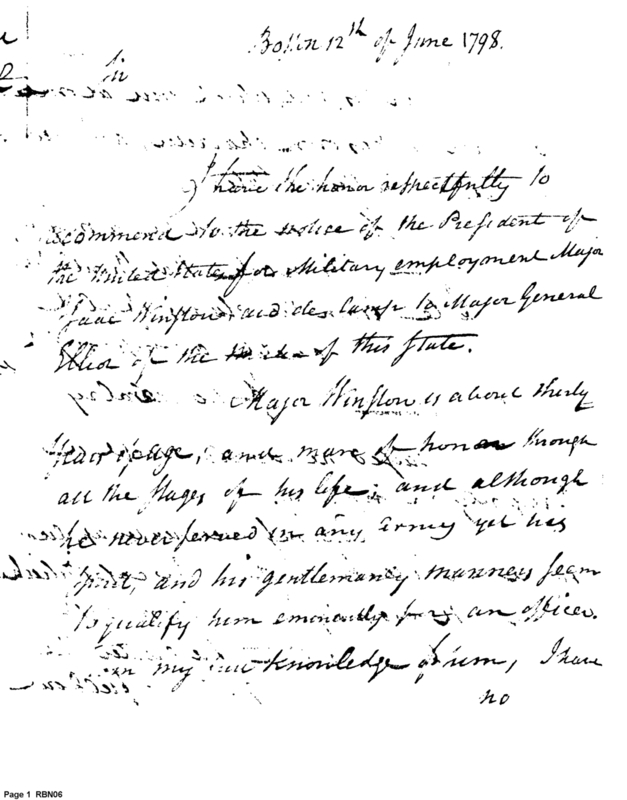 Boston 12th of June 1798.
Sir
I have the honor respectfully to
recommend to the notice of the President of
the United States for Military employment Major
Isaac Winslow aid de Camp to Major General
Elliot of the of this State.
Major Winslow is about thirty
Years of age, and man of honor through
all the stages of his life; and although
he never served in any army yet his
spirit, and his gentlemanly manners seem
to qualify him eminently for an officer.
in my knowledge of him, I have
no
Page 1 RBN06